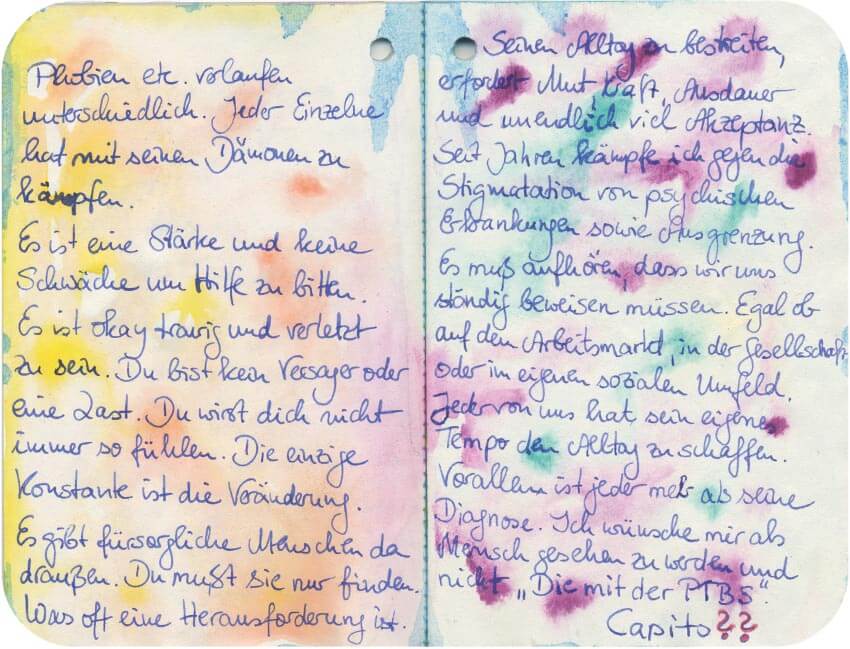 Phobien etc. verlaufen
unterschiedlich. Jeder Einzelne
hat mit seinen Dämonen zu
kämpfen.
Es ist eine Stärke und keine
Schwäche um Hilfe zu bitten.
Es ist okay traurig und verletzt
zu sein. Du bist kein Versager oder
eine Last. Du wirst dich nicht
immer so fühlen. Die einzige
Konstante ist die Veränderung.
Es gibt fürsorgliche Menschen da
draußen. Du mußt sie nur finden.
Was oft eine Herausforderung ist.
Seinen Alltag zu bestreiten,
erfordert Mut, Kraft, Ausdauer
und unendlich viel Akzeptanz.
Seit Jahren kämpfe ich gegen die
Stigmatation von psychischen
Erkrankungen sowie Ausgrenzung.
Es muß aufhören, dass wir uns
ständig beweisen müssen. Egal ob
auf dem Arbeitsmarkt, in der Gesellschaft
oder im eigenen sozialen Umfeld.
Jeder von uns hat sein eigenes
Tempo den Alltag zu schaffen.
Vorallem ist jeder mehr als seine
Diagnose. Ich wünsche mir als
Mensch gesehen zu werden und
nicht „Die mit der PTBS".
Capito??